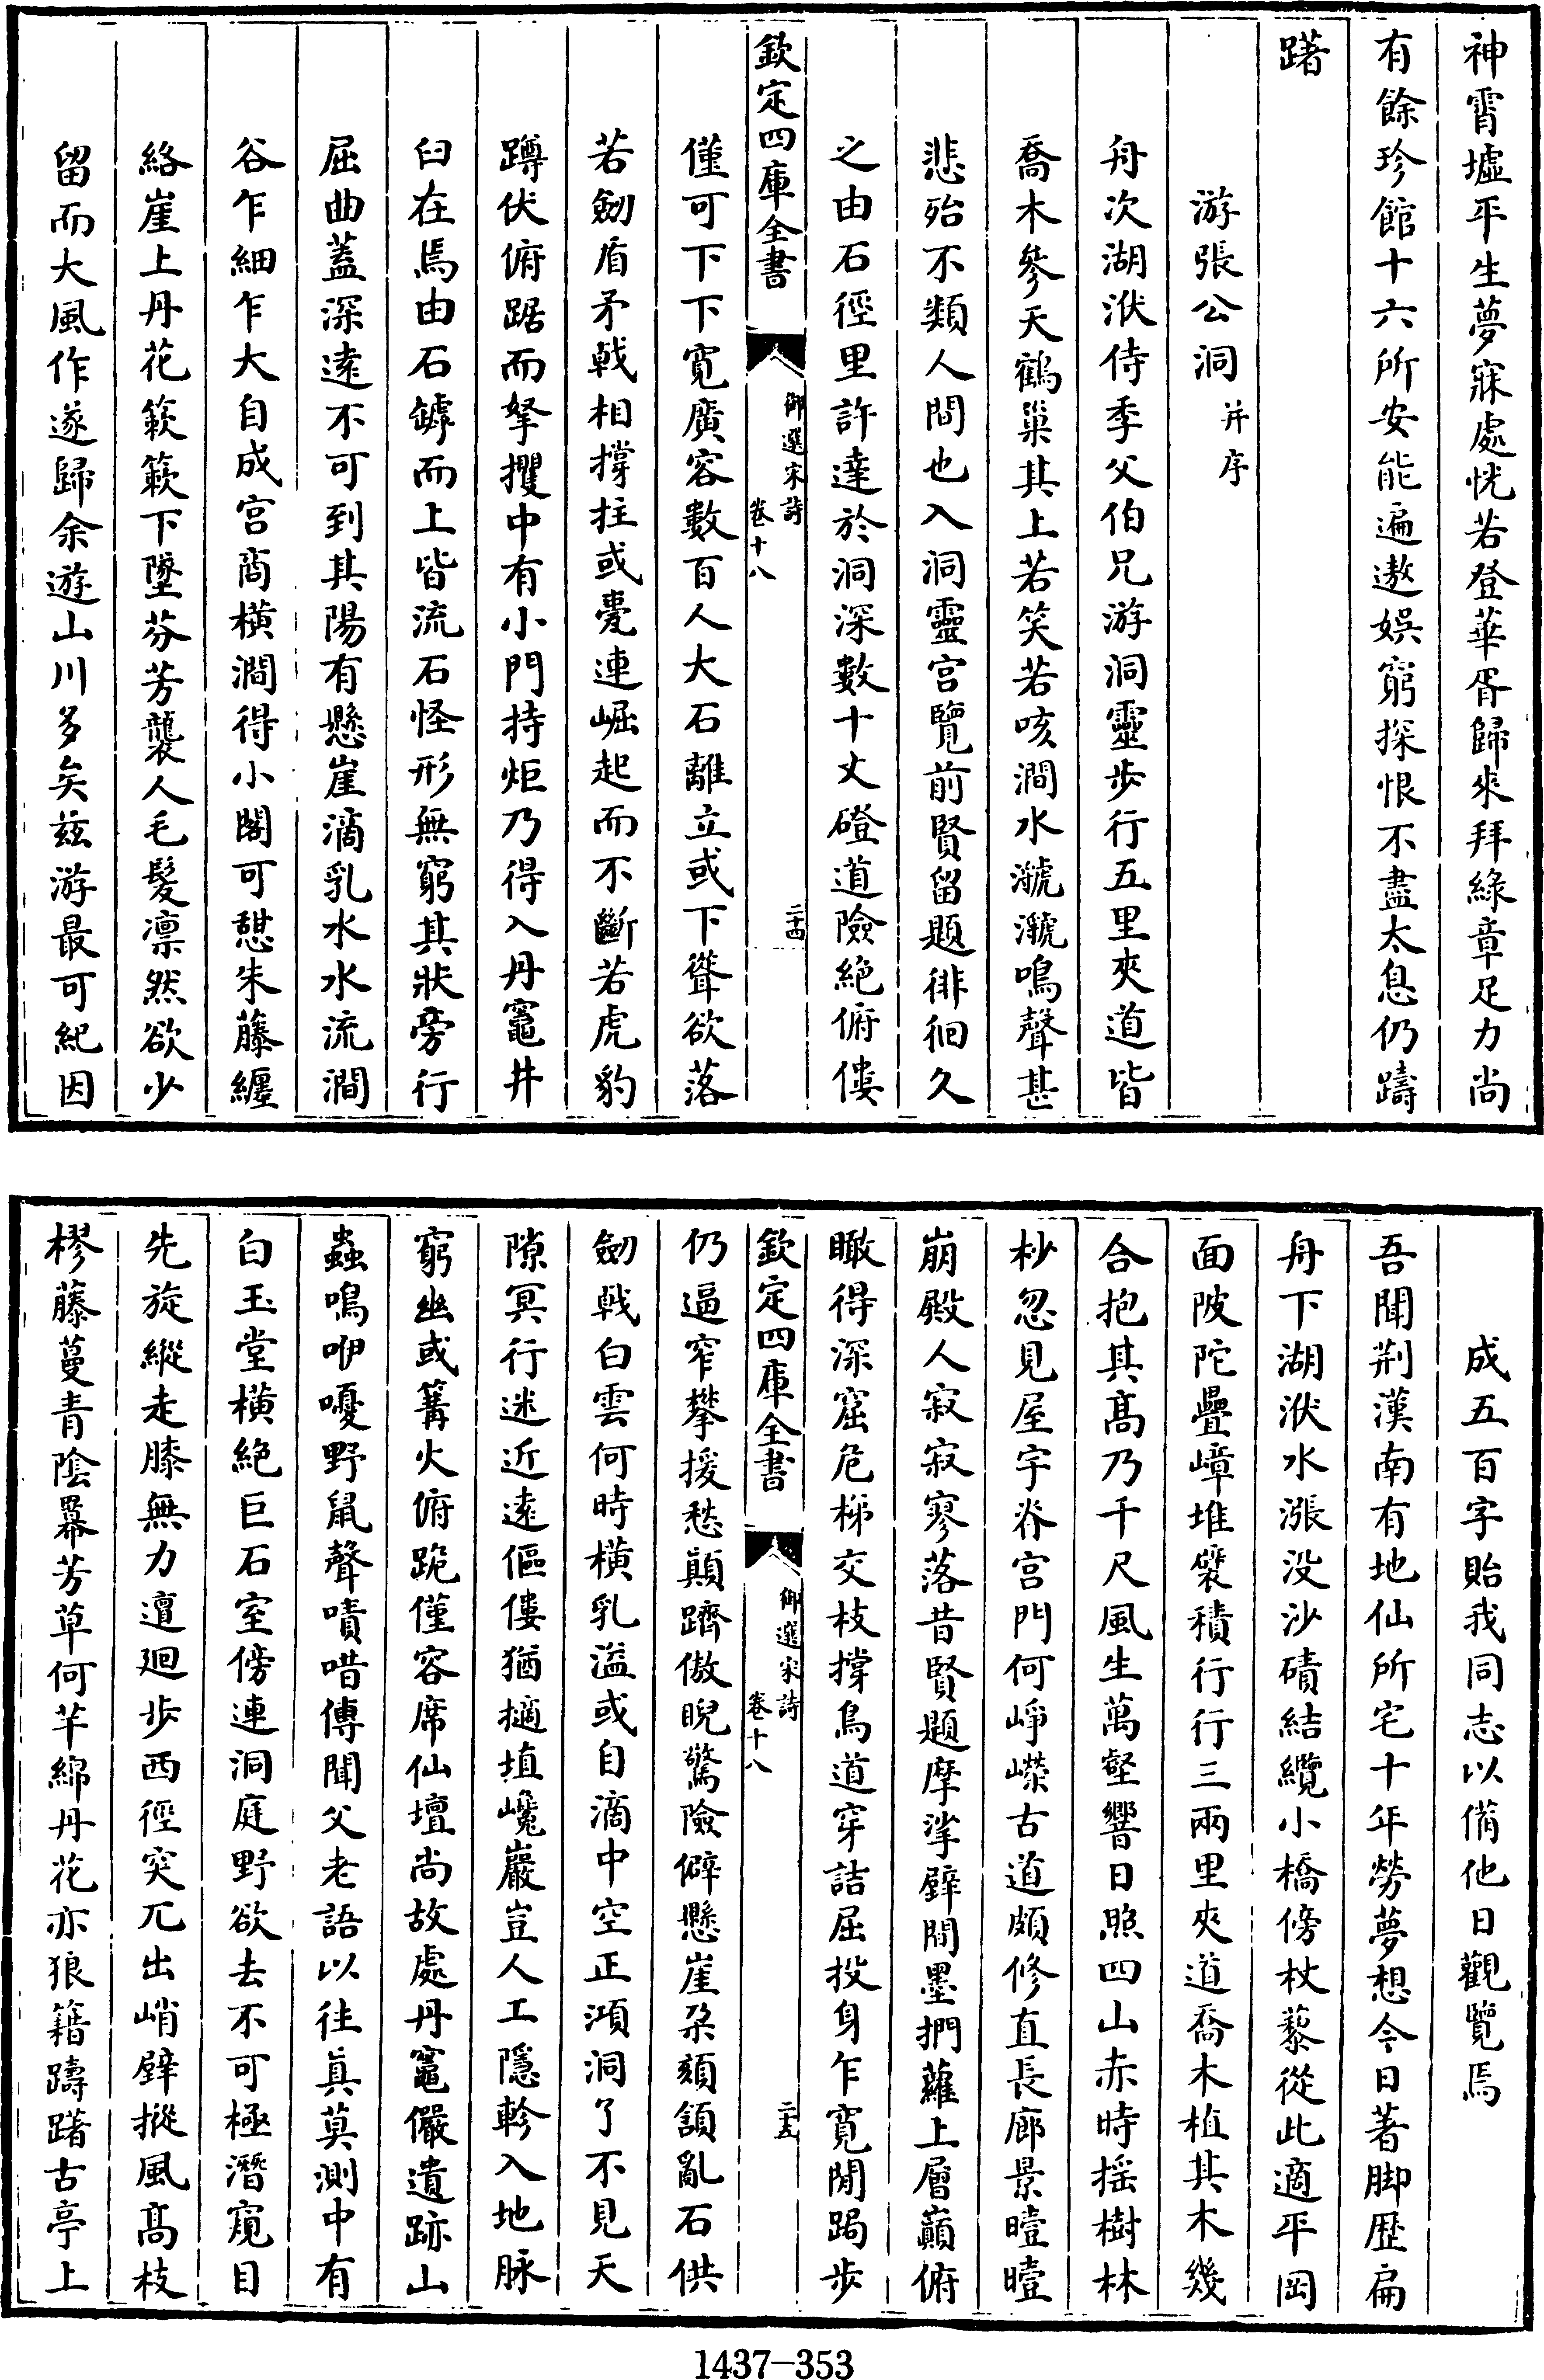 神霄墟平生夢寐處恍若登華胥歸來拜綠章足力尚
有餘珍館十六所安能遍遨娛窮探恨不盡太息仍躊
躇
游張公洞并序
舟次湖㳇侍季父伯兄游洞靈步行五里夾道皆
喬木參天鶴巢其上若笑若咳澗水㶁㶁鳴聲甚
悲殆不類人間也入洞靈宫覽前賢留題徘徊久
之由石徑里許達於洞深數十丈磴道險絶俯僂
欽定四庫全書
御選宋詩
卷十八
二十四
僅可下下寛廣容數百人大石離立或下聳欲落
若劒盾矛戟相撐拄或甍連崛起而不斷若虎豹
蹲伏俯踞而拏攫中有小門持炬乃得入丹竈井
臼在焉由石罅而上皆流石怪形無窮其狀旁行
屈曲蓋深逺不可到其陽有懸崖滴乳水水流澗
谷乍細乍大自成宫商横澗得小閣可憇朱藤纒
絡崖上丹花簌簌下墜芬芳襲人毛髮凛然欲少
留而大風作遂歸余遊山川多矣兹游最可紀因
成五百字貽我同志以備他日觀覽焉
吾聞荆漢南有地仙所宅十年勞夢想今日著脚歴扁
舟下湖㳇水漲没沙磧結纜小橋傍杖藜從此適平岡
面陂陀疊嶂堆襞積行行三兩里夾道喬木植其木幾
合抱其髙乃千尺風生萬壑響日照四山赤時揺樹林
杪忽見屋宇脊宫門何崢嶸古道頗修直長廊景曀曀
崩殿人寂寂寥落昔賢題摩挲壁間墨捫蘿上層巔俯
瞰得深窟危梯交枝撐鳥道穿詰屈投身乍寛閒跼步
欽定四庫全書
御選宋詩
卷十八
二十五
仍逼窄攀援愁顛躋傲睨驚險僻懸崖朶頦頷亂石供
劒戟白雲何時横乳溢或自滴中空正澒洞了不見天
隙冥行迷近逺傴僂猶擿埴巉巖豈人工隱軫入地脉
窮幽或篝火俯跪僅容席仙壇尚故處丹竈儼遺跡山
蟲鳴咿嚘野鼠聲嘖唶傳聞父老語以往眞莫測中有
白玉堂横絶巨石室傍連洞庭野欲去不可極潛窺目
先旋縱走膝無力邅廻步西徑突兀出峭壁摐風髙枝
樛藤蔓青陰羃芳草何芊綿丹花亦狼籍躊躇古亭上
1437-353